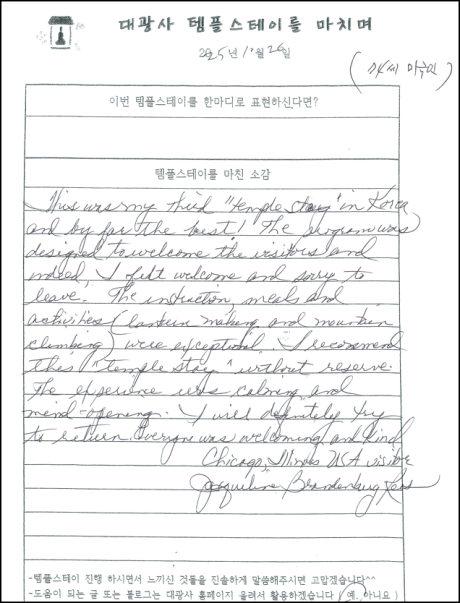 대광사 템플스테이를 마치며
2025년 1월 26일
이번 템플스테이를 한마디로 표현하신다면?
템플스테이를 마친 소감
This was my third "temple stay" in Korea
and by far the best! The program was
designed to welcome the visitors and
indeed, I felt welcome and sorry to
leave. The instruction, meals and
activities (lantern making and mountain
climbing) were exceptional. I recommend
this "temple stay" without reserve.
The experience was calming and
mind-opening. I will definitely try
to return. Everyone was welcoming and kind.
Chicago, Illinois USA visitor
Jacqueline Brandenburg
-템플스테이 진행 하시면서 느끼신 것들을 진솔하게 말씀해주시면 고맙겠습니다^^
-도움이 되는 글 또는 블로그는 대광사 홈페이지 올려서 활용하겠습니다 (예, 아니요)